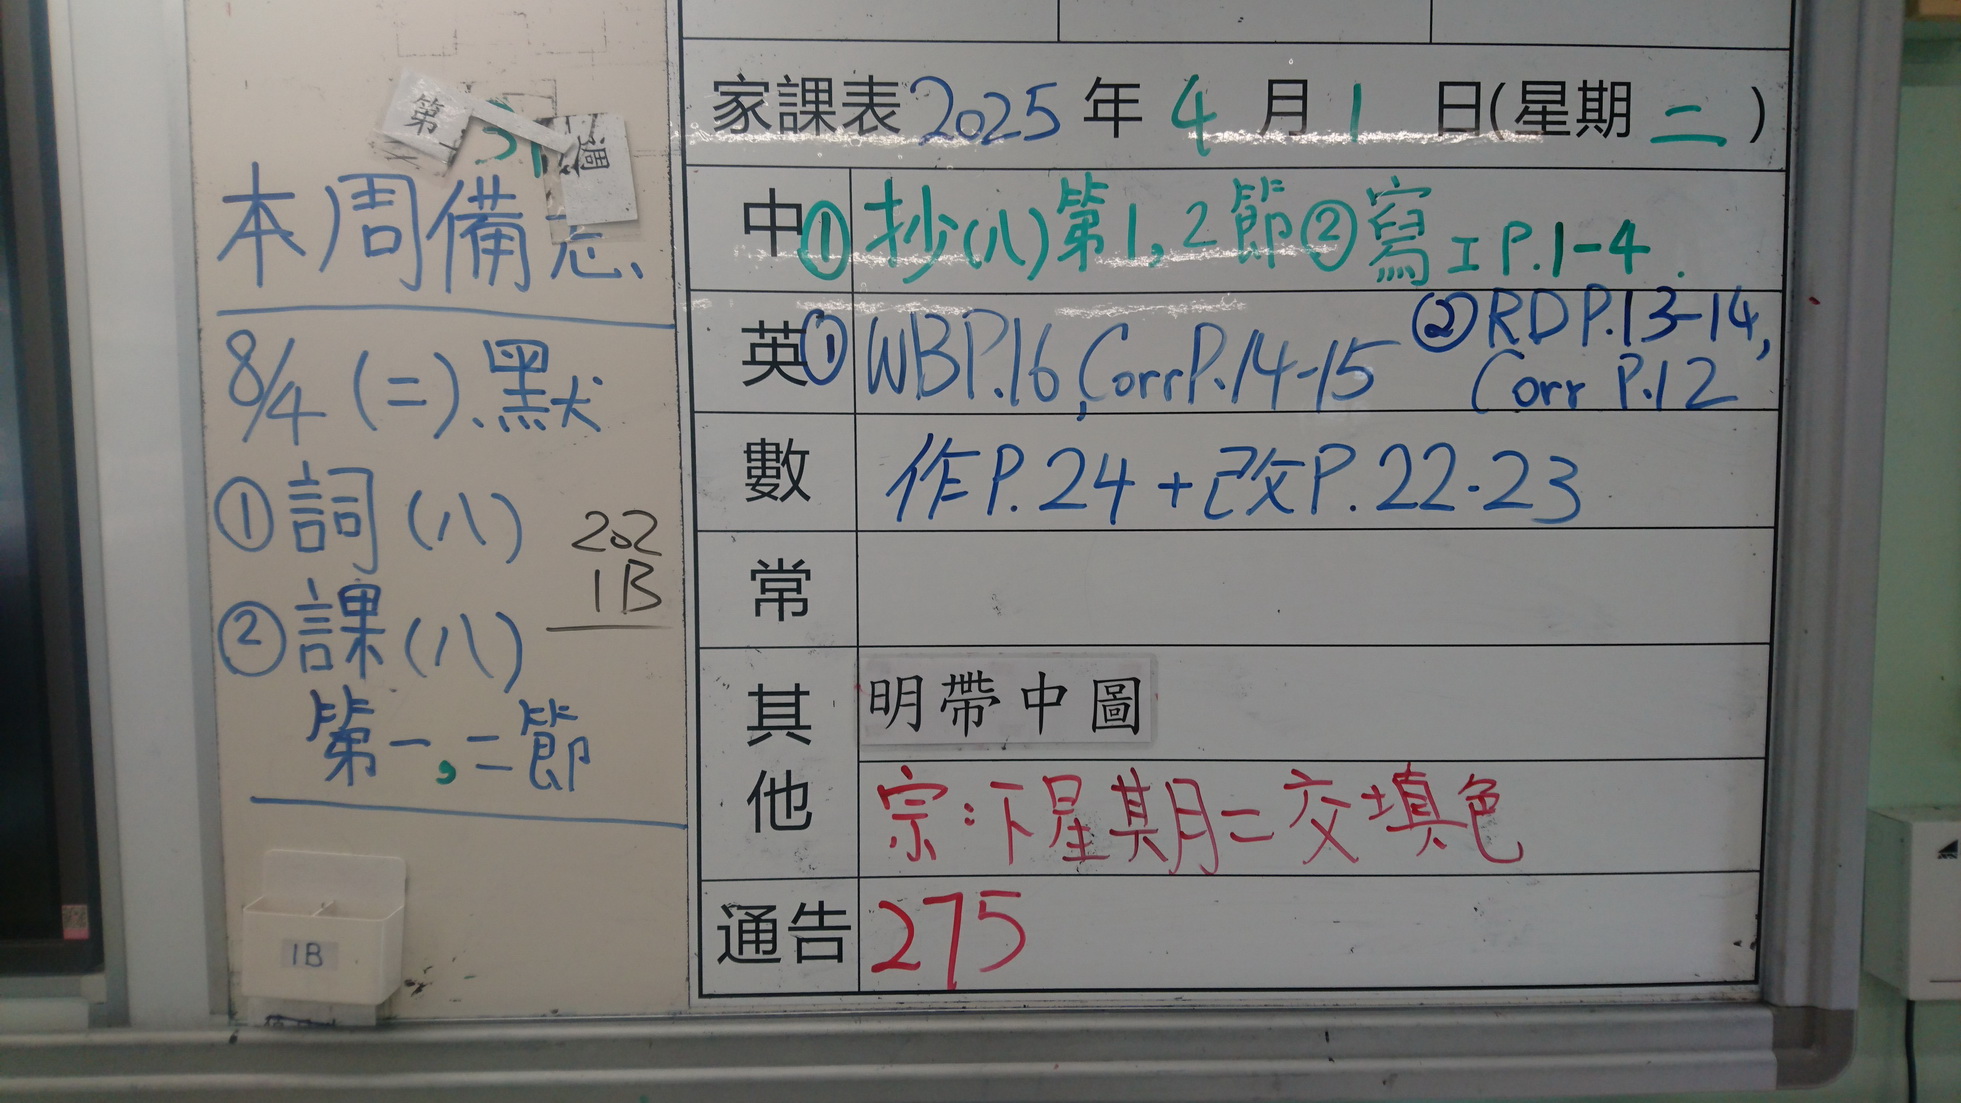 第 31 週
本周備忘
8/4 (二). 默
① 詞 (八)
② 課 (八)
第一,二節
202
1B
1B
家課表 2025 年 4 月 1 日(星期 二 )
中 ① 抄(八)第1,2節 ② 寫 工 P.1-4.
英 ① WB P.16, Corr P.14-15 ② RD P.13-14,
Corr P.12
數 作 P.24 + 改 P.22-23
常
其他
明帶中圖
宗:下星期二交填色
通告 275